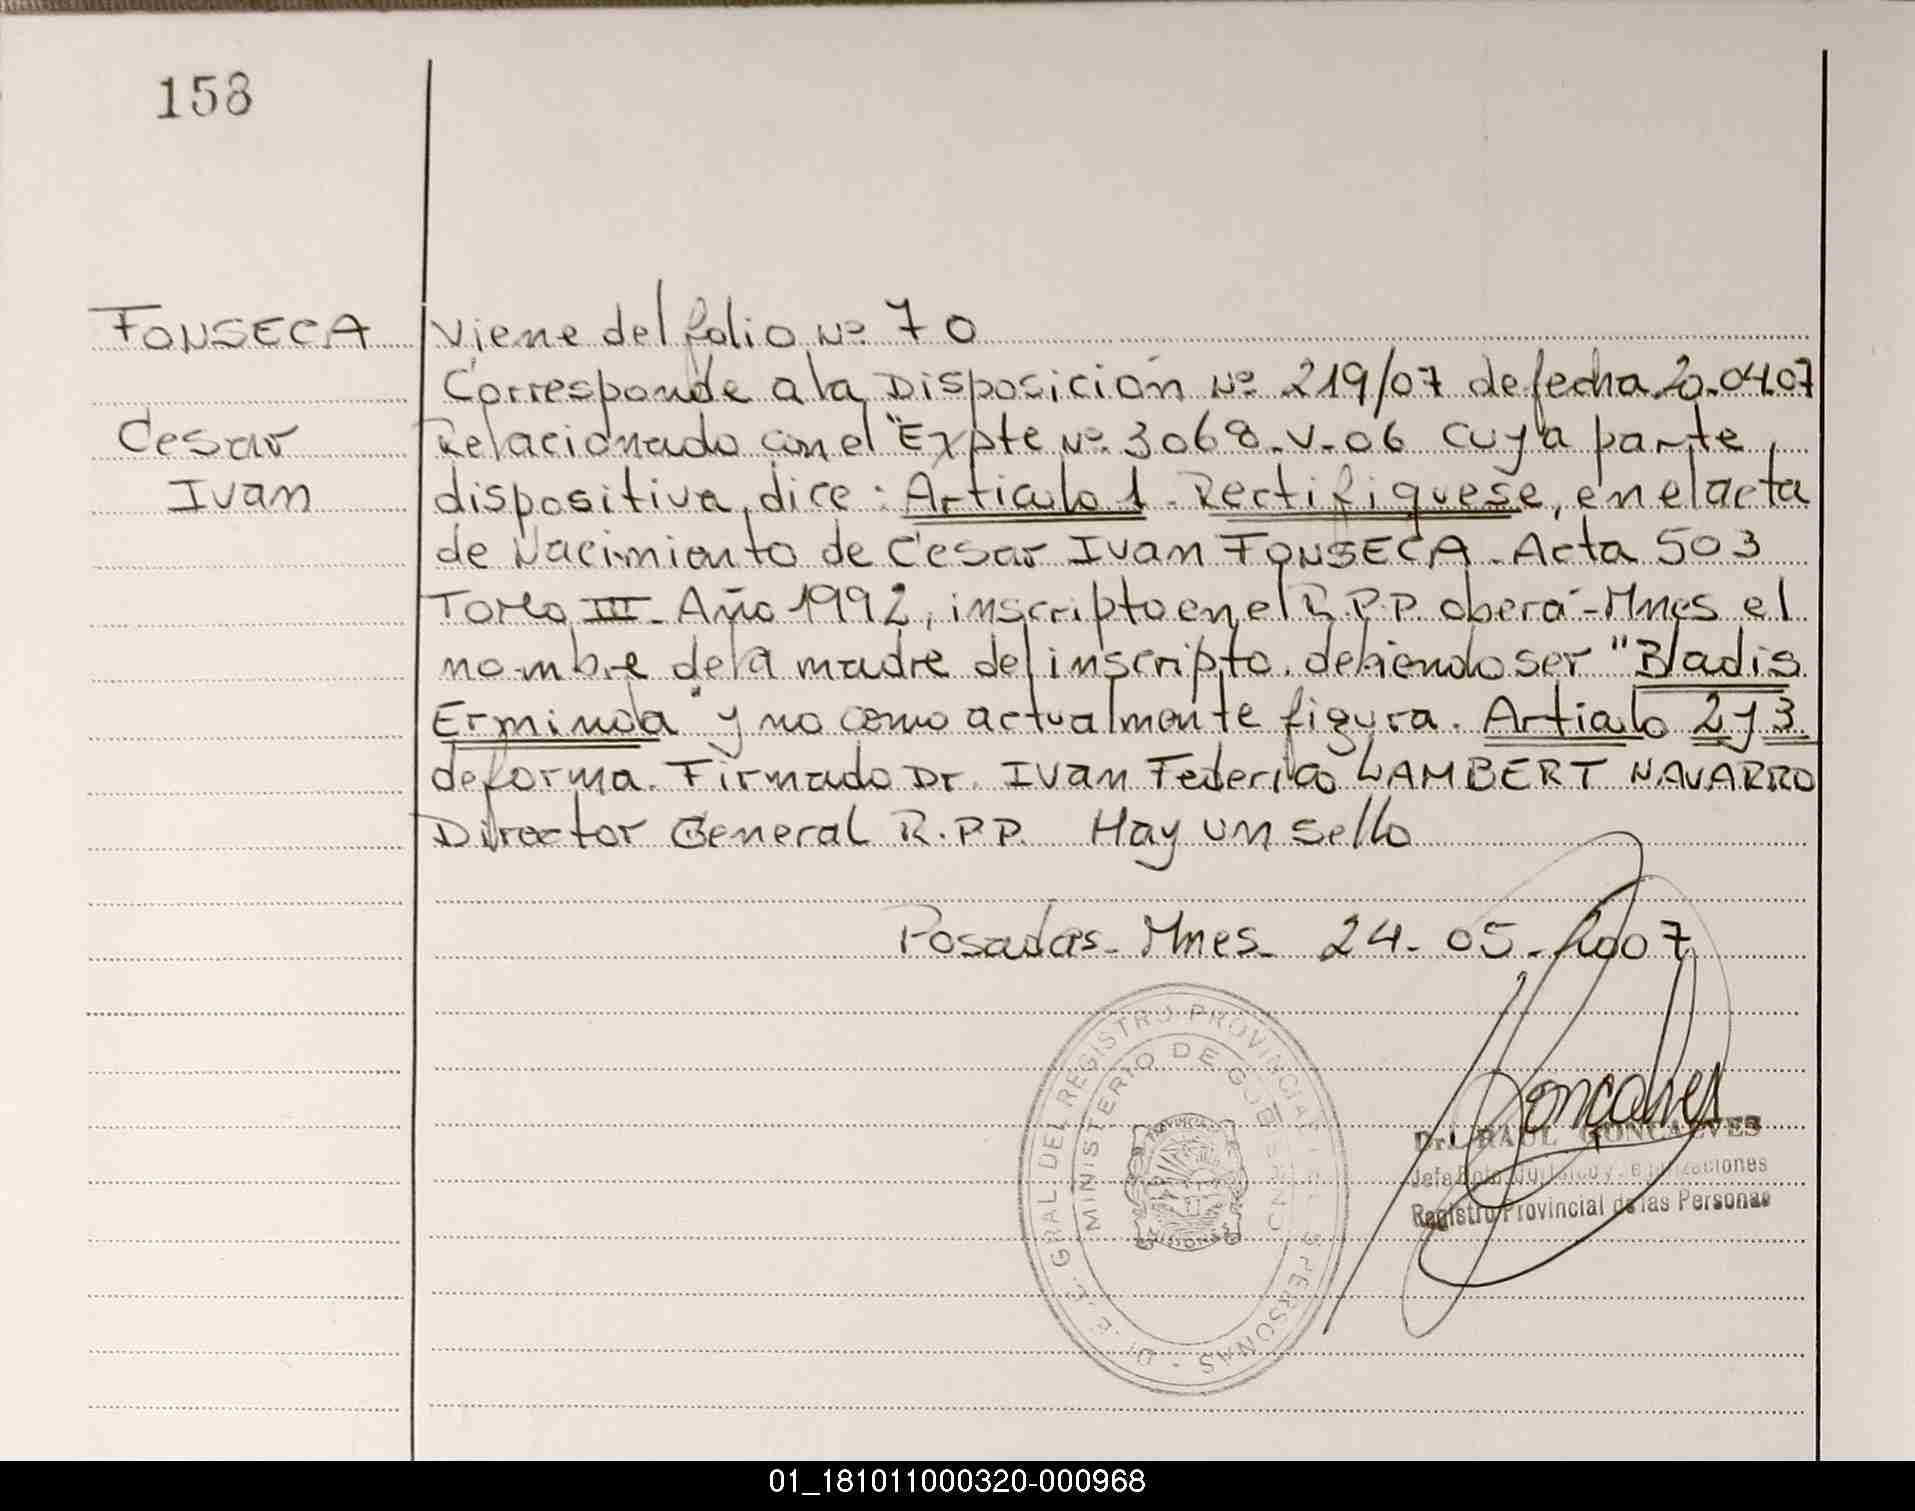 158
FONSECA
Cesar
Ivan
Viene del folio Nº 70
Corresponde a la Disposición Nº 219/07 de fecha 20-04-07
Relacionado con el "Expte Nº 3068-V-06 cuya parte
dispositiva, dice: Articulo 1. Rectifiquese, en el acta
de Nacimiento de Cesar Ivan FONSECA. Acta 503
Tomo III - Año 1992, inscripto en el R.P.P. oberá-Mnes el
nombre de la madre del inscripto. debiendo ser "Bladis
Erminda" y no como actualmente figura. Articulo 2 y 3
de forma. Firmado Dr. Ivan Federico LAMBERT NAVARRO
Director General R.P.P. Hay un sello
Posadas- Mnes- 24-05-2007
GRAL DEL REGISTRO PROVINCIAL PERSONAS
MINISTERIO DE GOBIERNO
PROVINCIA
MISIONES
Goncalves
Dr. RAUL GONCALVES
Registro Provincial de las Personas
01_181011000320-000968